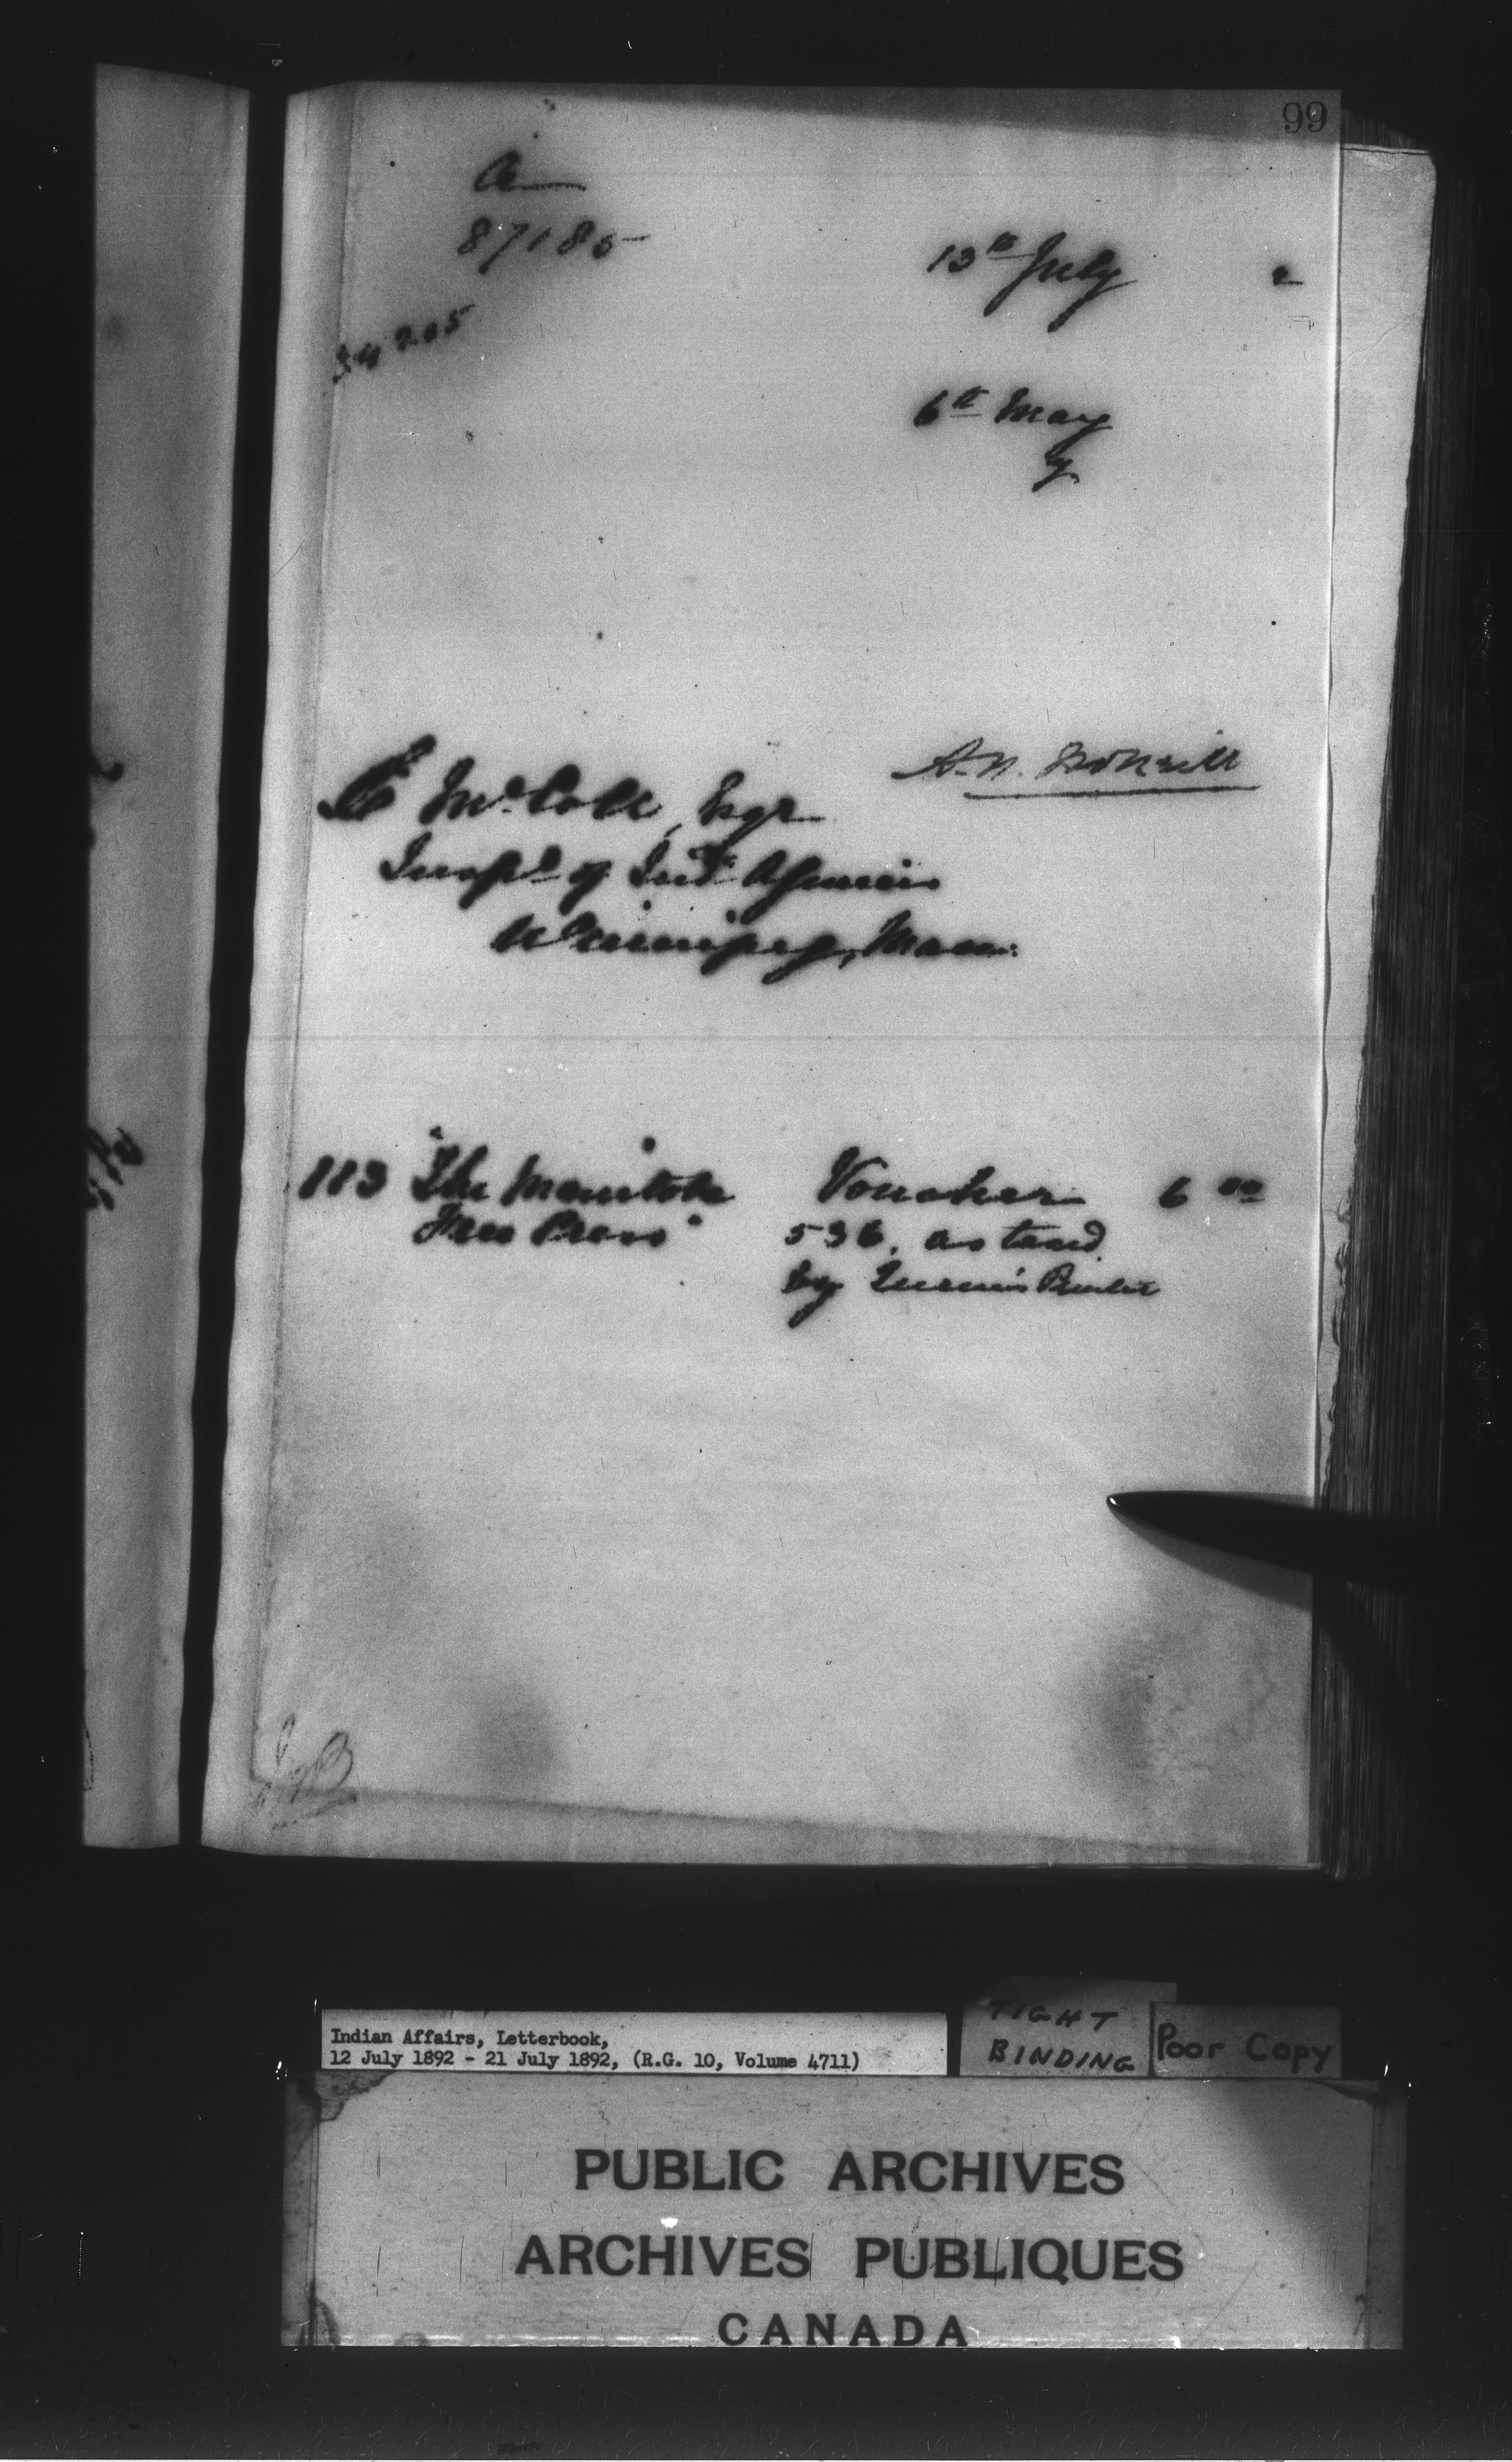 99
87185
34205
13th July 2
6th May
y
A. N. McNeill
E McColl, Esqr
Inspr of Ind. Agencies
Winnipeg, Man:
113 "The Manitoba Voucher 6 00
Free Press" 536, as taxed
by Queen's Printer
Indian Affairs, Letterbook,
12 July 1892 - 21 July 1892, (R.G. 10, Volume 4711)
TIGHT
BINDING
Poor Copy
PUBLIC ARCHIVES
ARCHIVES PUBLIQUES
CANADA